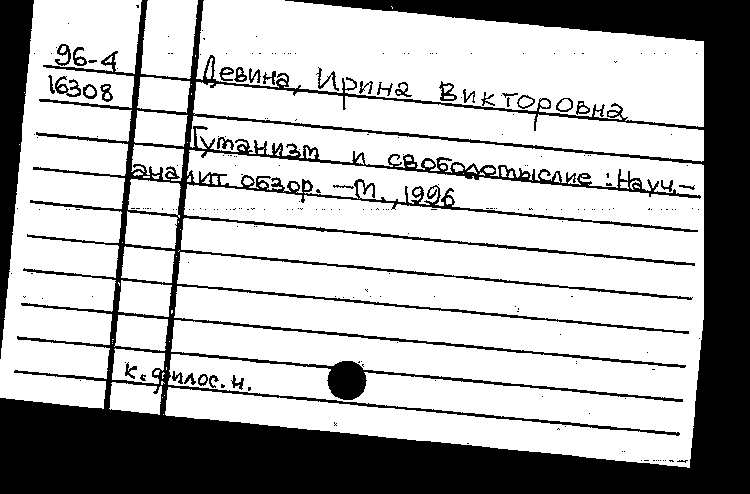 96-4
16308
Девина, Ирина Викторовна
Гуманизм и свободомыслие : Науч.-
аналит. обзор. — М., 1996
к. филос. н.